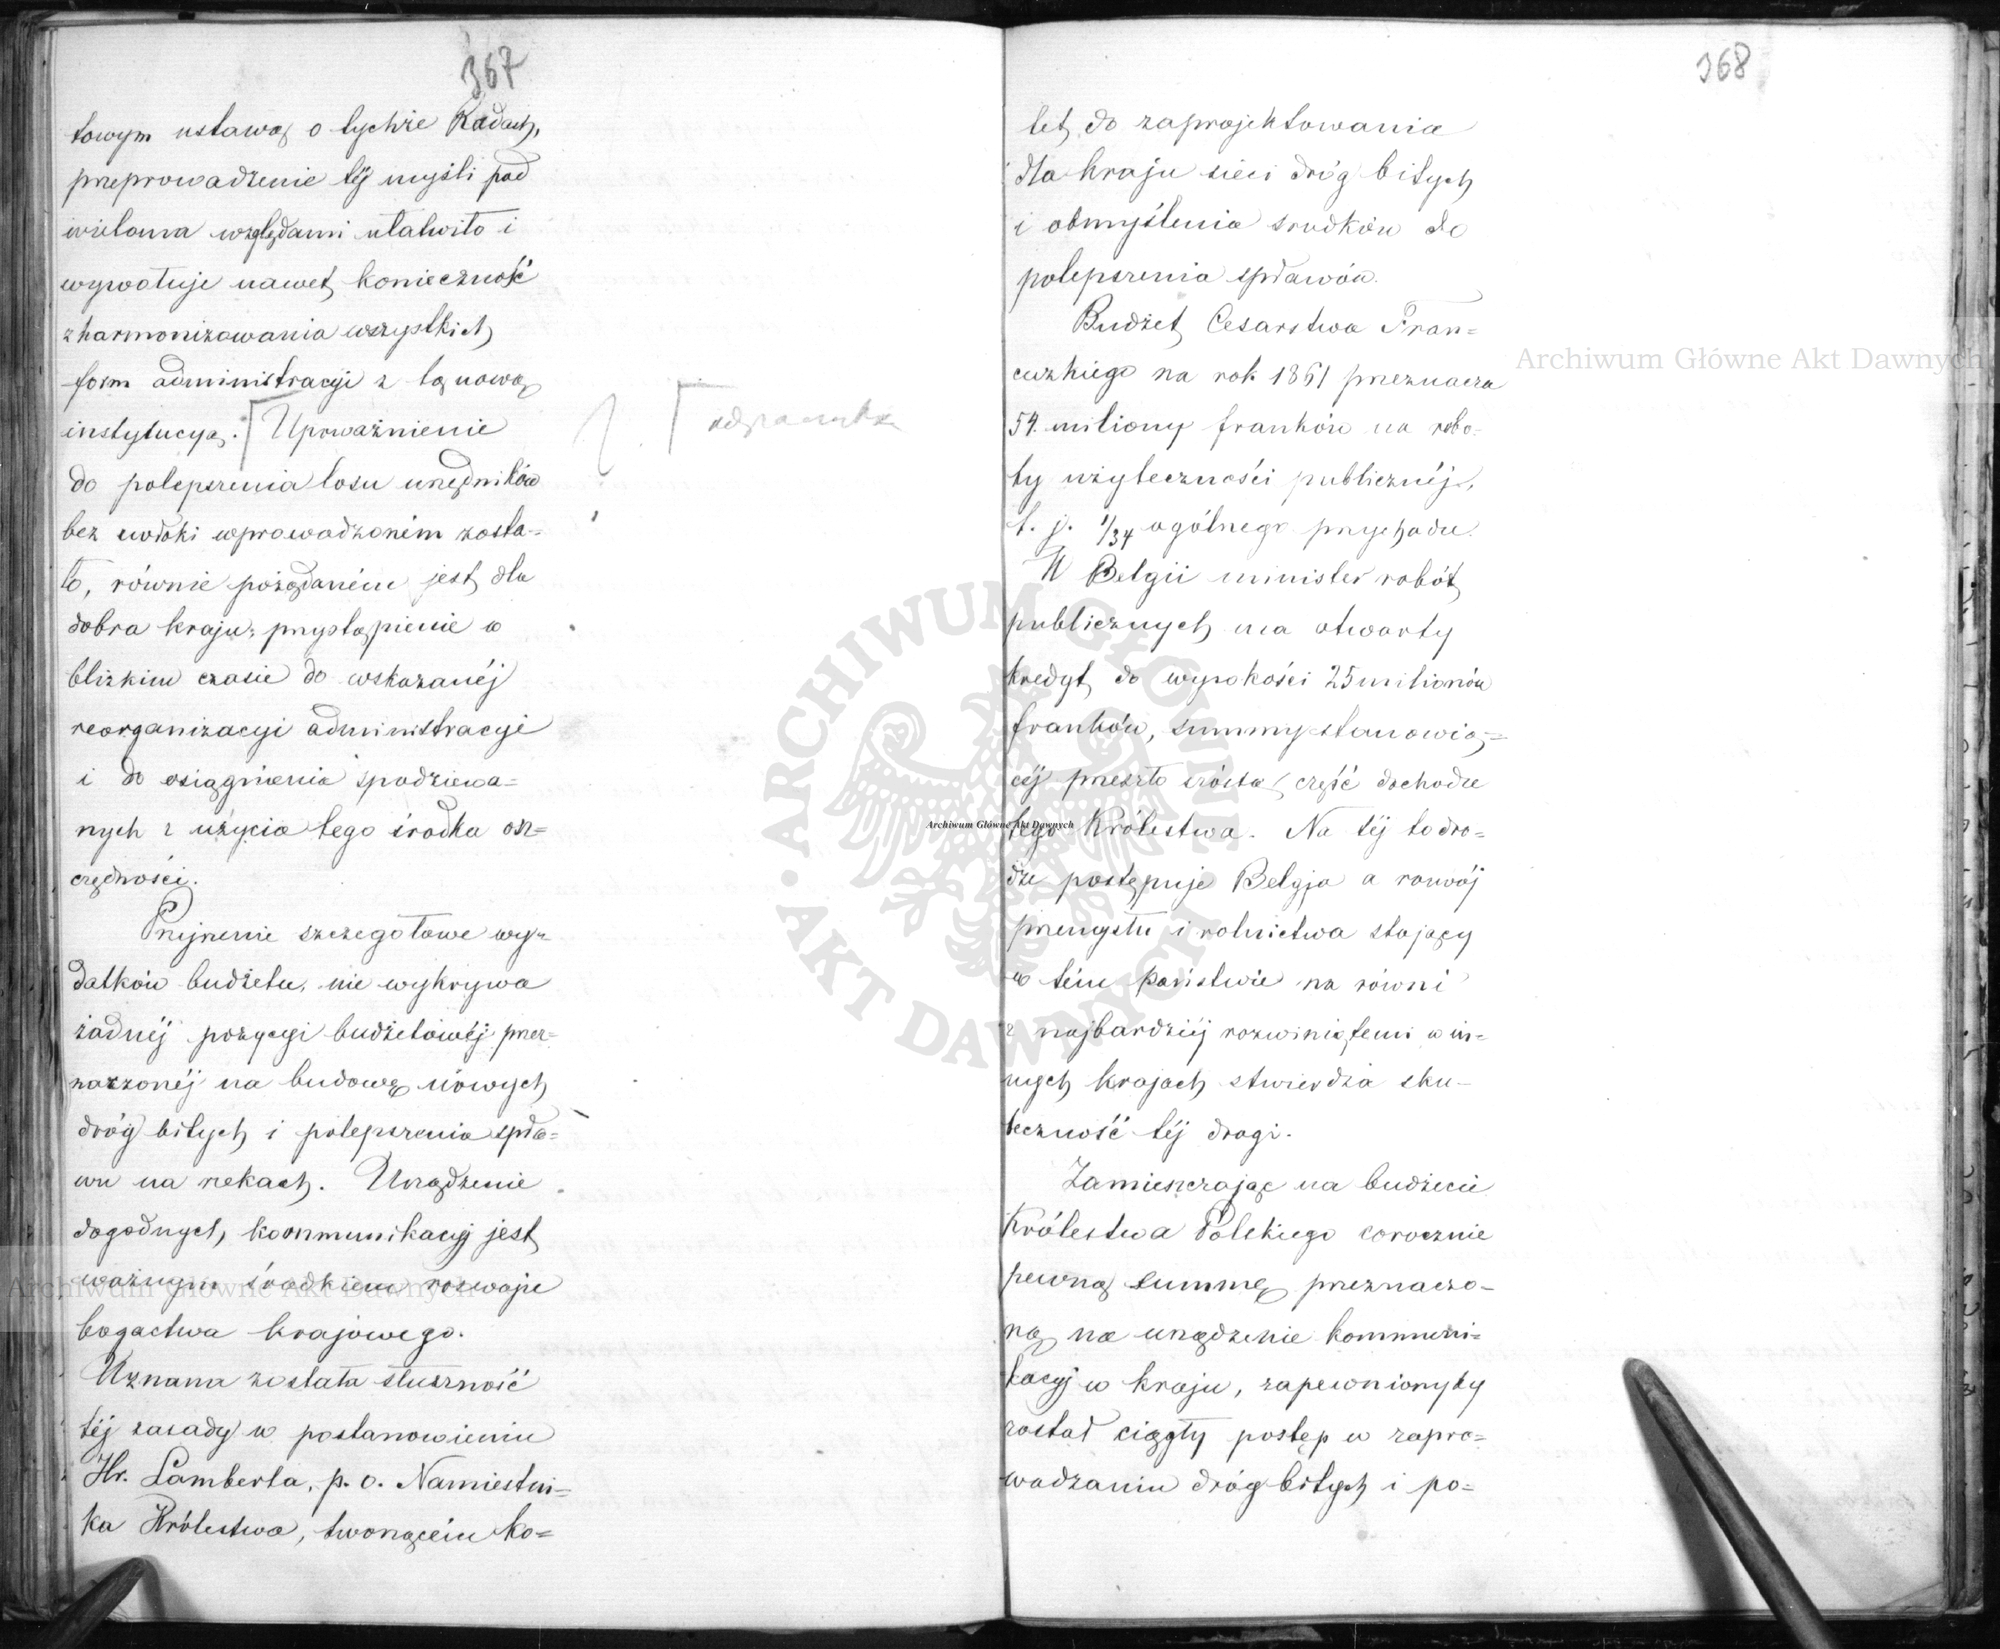 367
towym ustawą o tychże Radach,
przeprowadzenie téj myśli pod
wieloma względami ułatwiło i
wywołuje nawet konieczność
zharmonizowania wszystkich
form administracyi z tą nową
instytucyą. Upoważnienie
do polepszenia losu urzędników
bez zwłoki wprowadzoném zosta=
ło, równie pożądaném jest dla
dobra kraju, przystąpienie w
blizkim czasie do wskazanéj
reorganizacyi administracyi
i do osiągnienia spodziewa=
nych z użycia tego środka osz=
czędności.
Przejrzenie szczegołowe wy=
datków budżetu, nie wykrywa
żadnéj pozycyi budżetowéj prze=
znaczonéj na budowę nowych
dróg bitych i polepszenia spła=
wu na rzekach. Urządzenie
dogodnych kommunikacyj jest
ważnym środkiem rozwoju
bogactwa krajowego.
Uznana została słuszność
téj zasady w postanowieniu
Hr. Lamberta, p. o. Namiestni=
ka Królestwa, tworzącém ko=
odparcie
368
tet do zaprojektowania
dla kraju sieci dróg bitych
i obmyślenia srodków do
polepszenia spławów.
Budżet Cesarstwa Fran=
cuzkiego na rok 1861 przeznacza
54. miliony franków na robo=
ty użyteczności publicznéj,
t. j. 1/34 ogólnego przychodu.
W Belgii minister robót
publicznych ma otwarty
kredyt do wysokości 25 milionów
franków, summy stanowią=
céj przeszło szóstą część dochodu
tego Królestwa. Na téj to dro=
dze postępuje Belgja a rozwój
przemysłu i rolnictwa stojący
w tém państwie na równi
z najbardziéj rozwiniętemi w in=
nych krajach stwierdza sku=
teczność téj drogi.
Zamieszczając na budżecie
Królestwa Polskiego corocznie
pewną summę przeznaczo=
ną na urządzenie kommuni=
kacyj w kraju, zapewnionyby
został ciągły postęp w zapro=
wadzaniu dróg bitych i po=
Archiwum Główne Akt Dawnych
Archiwum Główne Akt Dawnych
Archiwum Główne Akt Dawnych
ARCHIWUM GŁÓWNE AKT DAWNYCH